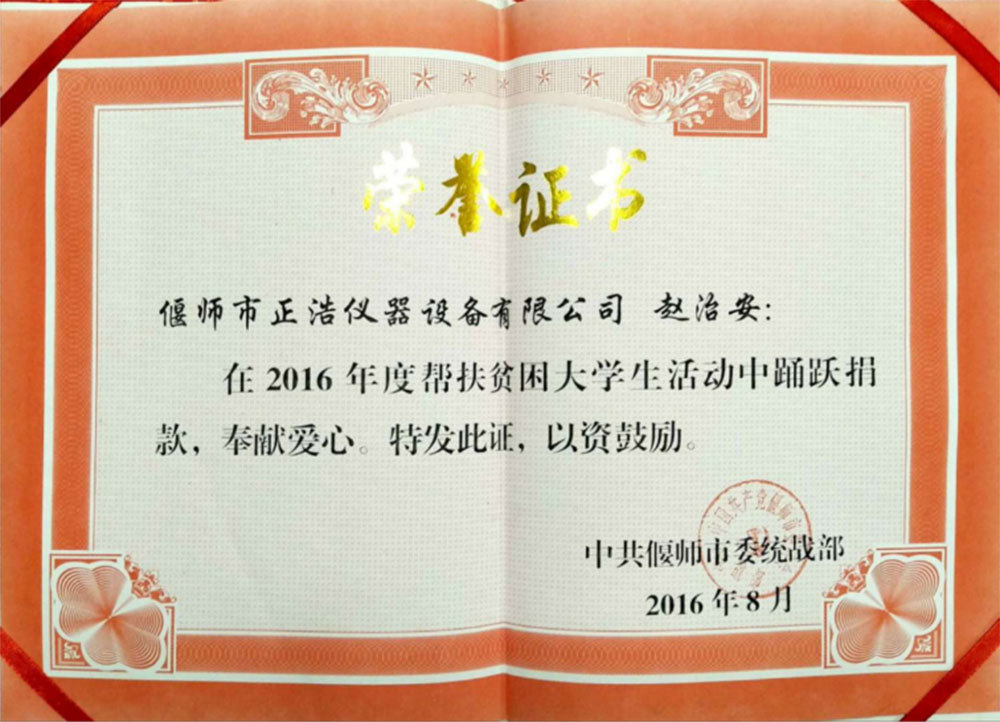 荣誉证书
偃师市正浩仪器设备有限公司 赵治安:
在 2016 年度帮扶贫困大学生活动中踊跃捐
款，奉献爱心。特发此证，以资鼓励。
中国共产党偃师市
中共偃师市委统战部
2016 年 8 月